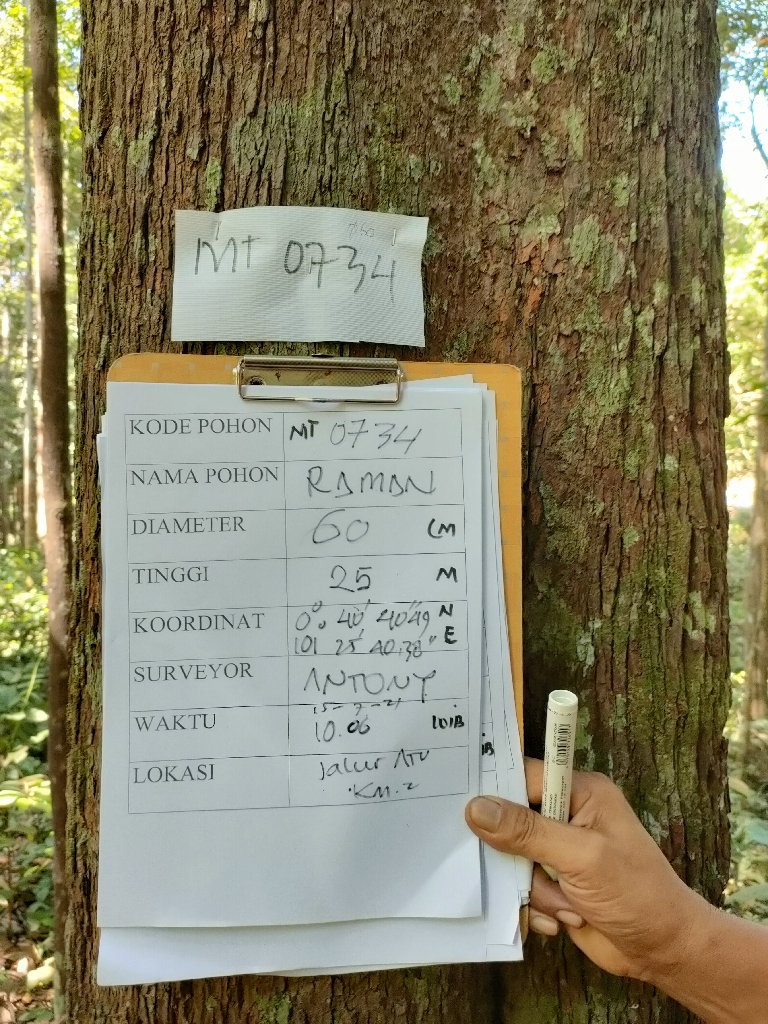 MT 0734
KODE POHON MT 0734
NAMA POHON RAMAN
DIAMETER 60 CM
TINGGI 25 M
KOORDINAT 0°. 40' 40.49 N
101 25' 40.38" E
SURVEYOR ANTONY
WAKTU 10.06 WIB
LOKASI Jalur ATV
KM. 2